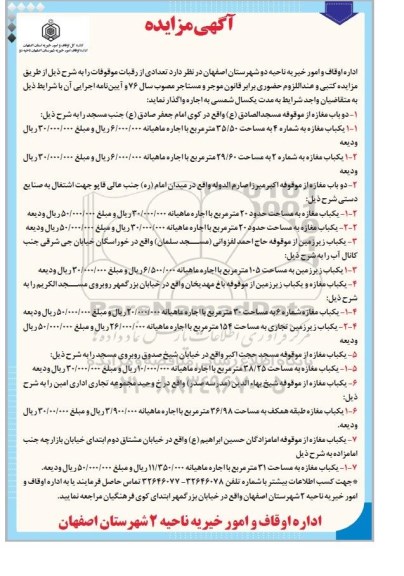 آگهی مزایده
اداره کل اوقاف و امور خیریه استان اصفهان
اداره اوقاف و امور خیریه شهرستان اصفهان ناحیه دو
اداره اوقاف و امور خیریه ناحیه دو شهرستان اصفهان در نظر دارد تعدادی از رقبات موقوفات را به شرح ذیل از طریق
مزایده کتبی و عنداللزوم حضوری برابر قانون موجر و مستاجر مصوب سال ۷۶ و آیین‌نامه اجرایی آن با شرایط ذیل
به متقاضیان واجد شرایط به مدت یکسال شمسی به اجاره واگذار نماید:
۱- دو باب مغازه از موقوفه مسجدالصادق (ع) واقع در کوی امام جعفر صادق (ع) جنب مسجد را به شرح ذیل:
۱-۱ یکباب مغازه به شماره ۴ به مساحت ۳۵/۵۰ متر مربع با اجاره ماهیانه ۶/۰۰۰/۰۰۰ ریال و مبلغ ۳۰/۰۰۰/۰۰۰ ریال
ودیعه
۱-۲ یکباب مغازه به شماره ۲ به مساحت ۲۹/۶۰ متر مربع با اجاره ماهیانه ۶/۰۰۰/۰۰۰ ریال و مبلغ ۳۰/۰۰۰/۰۰۰ ریال
ودیعه
۲- دو باب مغازه از موقوفه اکبر میرزا صارم الدوله واقع در میدان امام (ره) جنب عالی قاپو جهت اشتغال به صنایع
دستی شرح ذیل:
۲-۱- یکباب مغازه به مساحت حدود ۲۰ متر مربع با اجاره ماهیانه ۳۰/۰۰۰/۰۰۰ ریال و مبلغ ۵۰/۰۰۰/۰۰۰ ریال ودیعه
۲-۲- یکباب مغازه به مساحت حدود ۲۰ متر مربع با اجاره ماهیانه ۳۰/۰۰۰/۰۰۰ ریال و مبلغ ۵۰/۰۰۰/۰۰۰ ریال ودیعه
۳- یکباب زیرزمین از موقوفه حاج احمد لفزوانی (مسجد سلمان) واقع در خوراسگان خیابان جی شرقی جنب
کانال آب را به شرح ذیل:
۳-۱ یکباب زیرزمین به مساحت ۱۰۵ متر مربع با اجاره ماهیانه ۶/۵۰۰/۰۰۰ ریال و مبلغ ۳۰/۰۰۰/۰۰۰ ریال ودیعه
۴- یکباب مغازه و یکباب زیرزمین از موقوفه باغ مهدیخان واقع در خیابان بزرگمهر روبروی مسجد الکریم را به
شرح ذیل:
۴-۱ یکباب مغازه شماره ۶ به مساحت ۳۰ متر مربع با اجاره ماهیانه ۲۰/۰۰۰/۰۰۰ ریال و مبلغ ۵۰/۰۰۰/۰۰۰ ریال ودیعه
۴-۲- یکباب زیرزمین تجاری به مساحت ۱۵۴ متر مربع با اجاره ماهیانه ۲۶/۰۰۰/۰۰۰ ریال و مبلغ ۵۰/۰۰۰/۰۰۰ ریال
ودیعه
۵- یکباب مغازه از موقوفه مسجد حجت اکبر واقع در خیابان شیخ صدوق روبروی مسجد را به شرح ذیل:
۵-۱ یکباب مغازه به مساحت ۳۸/۲۵ متر مربع با اجاره ماهیانه ۱۰/۰۰۰/۰۰۰ ریال و مبلغ ۳۰/۰۰۰/۰۰۰ ریال ودیعه
۶- یکباب مغازه از موقوفه شیخ بهاء الدین (مدرسه صدر) واقع در خ وحید مجموعه تجاری اداری امین را به شرح
ذیل:
۶-۱ یکباب مغازه طبقه همکف به مساحت ۳۶/۹۸ متر مربع با اجاره ماهیانه ۳/۹۰۰/۰۰۰ ریال و مبلغ ۳۰/۰۰۰/۰۰۰ ریال
ودیعه
۷- یکباب مغازه از موقوفه امامزادگان حسین ابراهیم (ع) واقع در خیابان مشتاق دوم ابتدای خیابان بازارچه جنب
امامزاده به شرح ذیل
۷-۱- یکباب مغازه به مساحت ۳۱ متر مربع با اجاره ماهیانه ۱۱/۳۵۰/۰۰۰ ریال و مبلغ ۵۰/۰۰۰/۰۰۰ ریال ودیعه.
*جهت کسب اطلاعات بیشتر با شماره تلفن ۳۲۶۴۶۰۷۸- ۳۲۶۴۶۰۷۷ تماس حاصل فرمایند یا به اداره اوقاف و
امور خیریه ناحیه ۲ شهرستان اصفهان واقع در خیابان بزرگمهر ابتدای کوی فرهنگیان مراجعه نمایید.
اداره اوقاف و امور خیریه ناحیه ۲ شهرستان اصفهان